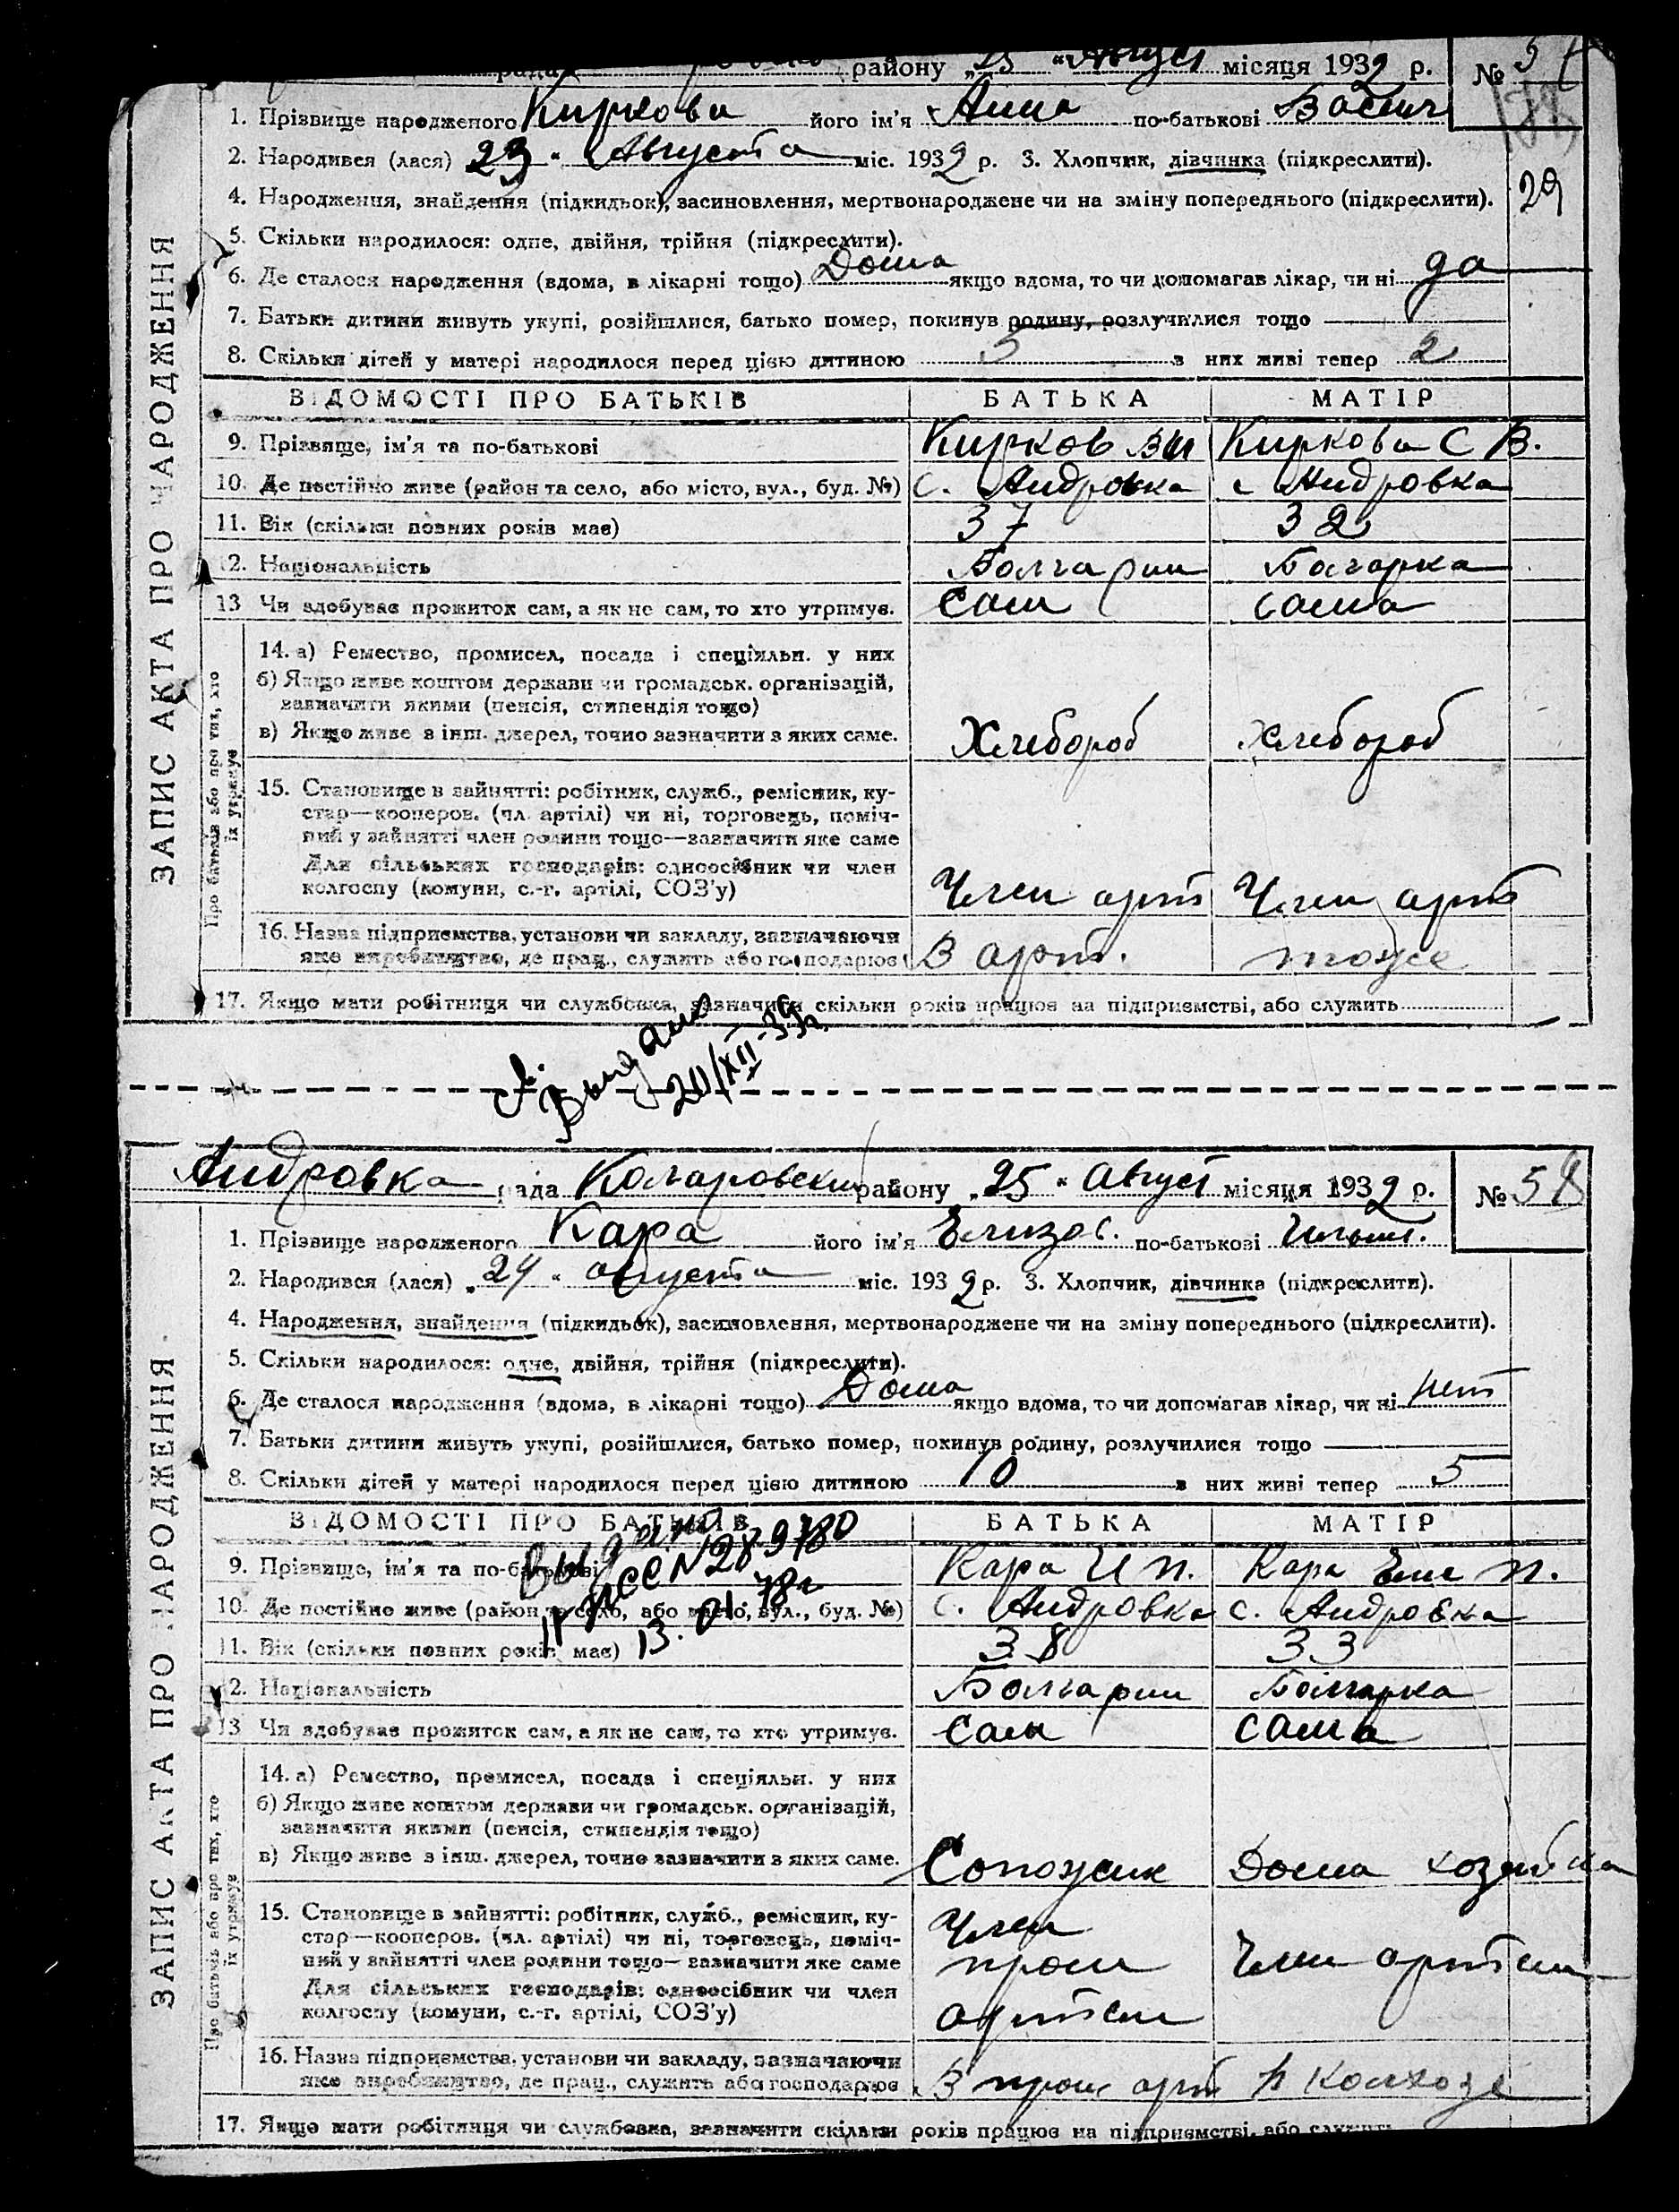 району „25 “ Август місяця 1932 р. №
1. Прізвище народженого Киркова його ім'я Анна по-батькові Васил
2. Народився (лася) 23 “ Августа міс. 1932 р. 3. Хлопчик, дівчинка (підкреслити).
29
4. Народження, знайдення (підкидьок), засиновлення, мертвонароджене чи на зміну попереднього (підкреслити).
5. Скільки народилося: одне, двійня, трійня (підкреслити).
6. Де сталося народження (вдома, в лікарні тощо) Дома якщо вдома, то чи допомагав лікар, чи ні да
7. Батьки дитини живуть укупі, розійшлися, батько помер, покинув родину, розлучилися тощо
8. Скільки дітей у матері народилося перед цією дитиною 5 з них живі тепер 2
ВІДОМОСТІ ПРО БАТЬКІВ БАТЬКА МАТІР
9. Прізвище, ім'я та по-батькові Кирков В И Киркова С В.
10. Де постійно живе (район та село, або місто, вул., буд. №) с. Андровка с Андровка
11. Вік (скільки повних років має) 37 32
12. Національність Болгарин Болгарка
13 Чи здобуває прожиток сам, а як не сам, то хто утримує. Сам сама
ЗАПИС АКТА ПРО НАРОДЖЕННЯ
Про батьків або про тих, хто
їх утримує
14. а) Ремество, промисел, посада і спеціяльн. у них
б) Якщо живе коштом держави чи громадськ. організацій,
зазначити якими (пенсія, стипендія тощо)
в) Якщо живе з інш. джерел, точно зазначити з яких саме. Хлебороб хлебороб
15. Становище в зайнятті: робітник, служб., ремісник, ку-
стар—кооперов. (чл. артілі) чи ні, торговець, поміч-
ний у зайнятті член родини тощо—зазначити яке саме
Для сільських господарів: одноосібник чи член
колгоспу (комуни, с.-г. артілі, СОЗ'у) Член арт Член арт
16. Назва підприємства, установи чи закладу, зазначаючи
яке виробництво, де прац., служить або господарює В арт. тоже
17. Якщо мати робітниця чи службовка, зазначити скільки років працює на підприємстві, або служить
св.
Выдано
20/XII-39г.
Андровка рада Коларовский району „25 “ Август місяця 1932 р. № 58
1. Прізвище народженого Кара його ім'я Елизов. по-батькові Ильин.
2. Народився (лася) „24 “ августа міс. 1932 р. 3. Хлопчик, дівчинка (підкреслити).
4. Народження, знайдення (підкидьок), засиновлення, мертвонароджене чи на зміну попереднього (підкреслити).
5. Скільки народилося: одне, двійня, трійня (підкреслити).
6. Де сталося народження (вдома, в лікарні тощо) Дома якщо вдома, то чи допомагав лікар, чи ні нет
7. Батьки дитини живуть укупі, розійшлися, батько помер, покинув родину, розлучилися тощо
8. Скільки дітей у матері народилося перед цією дитиною 10 з них живі тепер 5
ВІДОМОСТІ ПРО БАТЬКІВ БАТЬКА МАТІР
Выдано
№ 289780
13. 01 78г
9. Прізвище, ім'я та по-батькові Кара И П. Кара Ели П.
10. Де постійно живе (район та село, або місто, вул., буд. №) с. Андровка с. Андровка
11. Вік (скільки повних років має) 38 33
12. Національність Болгарин Болгарка
13 Чи здобуває прожиток сам, а як не сам, то хто утримує. Сам сама
ЗАПИС АКТА ПРО НАРОДЖЕННЯ
Про батьків або про тих, хто
їх утримує
14. а) Ремество, промисел, посада і спеціяльн. у них
б) Якщо живе коштом держави чи громадськ. організацій,
зазначити якими (пенсія, стипендія тощо)
в) Якщо живе з інш. джерел, точно зазначити з яких саме. Сапожник Дома хозяйка
15. Становище в зайнятті: робітник, служб., ремісник, ку-
стар—кооперов. (чл. артілі) чи ні, торговець, поміч-
ний у зайнятті член родини тощо—зазначити яке саме
Для сільських господарів: одноосібник чи член
колгоспу (комуни, с.-г. артілі, СОЗ'у) Член пром артели Член артели
16. Назва підприємства, установи чи закладу, зазначаючи
яке виробництво, де прац., служить або господарює В пром арт В колхозе
17. Якщо мати робітниця чи службовка, зазначити скільки років працює на підприємстві, або служить